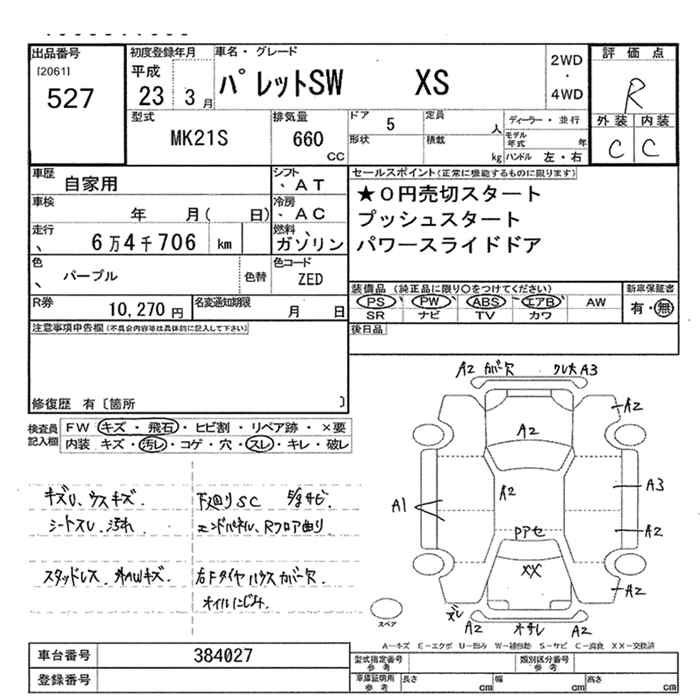 出品番号
[2061]
527
初度登録年月
平成
23 3 月
車名・グレード
パレットSW XS
2WD
・
4WD
評価点
R
外装 内装
C C
型式
MK21S
排気量
660
CC
ドア 5
定員
人
形状
積載
kg
ディーラー・並行
モデル年式
年
ハンドル 左・右
車歴
自家用
シフト
、AT
車検
年 月( 日)
冷房
、AC
走行
、 6万4千706 km
燃料
ガソリン
色
、 パープル
色替
色コード
ZED
R券
10,270 円
名変通知期限
月 日
セールスポイント(正常に機能するものに限ります)
★０円売切スタート
プッシュスタート
パワースライドドア
装備品 (純正品に限り○をつけてください)
PS PW ABS エアB AW
SR ナビ TV カワ
新車保証書
有・無
後日品
注意事項申告欄(不具合内容等は具体的に記入して下さい)
修復歴 有〔箇所 〕
検査員
記入欄
FW キズ・飛石・ヒビ割・リペア跡・×要
内装 キズ・汚レ・コゲ・穴・スレ・キレ・破レ
キズU、ウスキズ.
シートスレ.汚れ
スタッドレス.外ハWキズ.
下廻りSC
サビ
エンドパネル、Rフロア曲り
右FタイヤハウスカバーX.
オイルにじみ.
A2 カバー欠
A3
A2
A2
A2
A1
A3
A2
Pアセ
XX
A2
ズレ
A2
A2
スペア
A－キズ E－エクボ U－凹み W－補修跡 S－サビ C－腐食 XX－交換済
車台番号
384027
登録番号
型式指定番号
参考
類別区分番号
参考
車庫証明用
参考
長さ cm
幅 cm
高さ cm